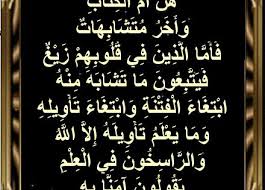 هُنَّ أُمُّ الْكِتَابِ
وَأُخَرُ مُتَشَابِهَاتٌ
فَأَمَّا الَّذِينَ فِي قُلُوبِهِمْ زَيْغٌ
فَيَتَّبِعُونَ مَا تَشَابَهَ مِنْهُ
ابْتِغَاءَ الْفِتْنَةِ وَابْتِغَاءَ تَأْوِيلِهِ
وَمَا يَعْلَمُ تَأْوِيلَهُ إِلاَّ اللَّهُ
وَالرَّاسِخُونَ فِي الْعِلْمِ
يَقُولُونَ آمَنَّا بِهِ